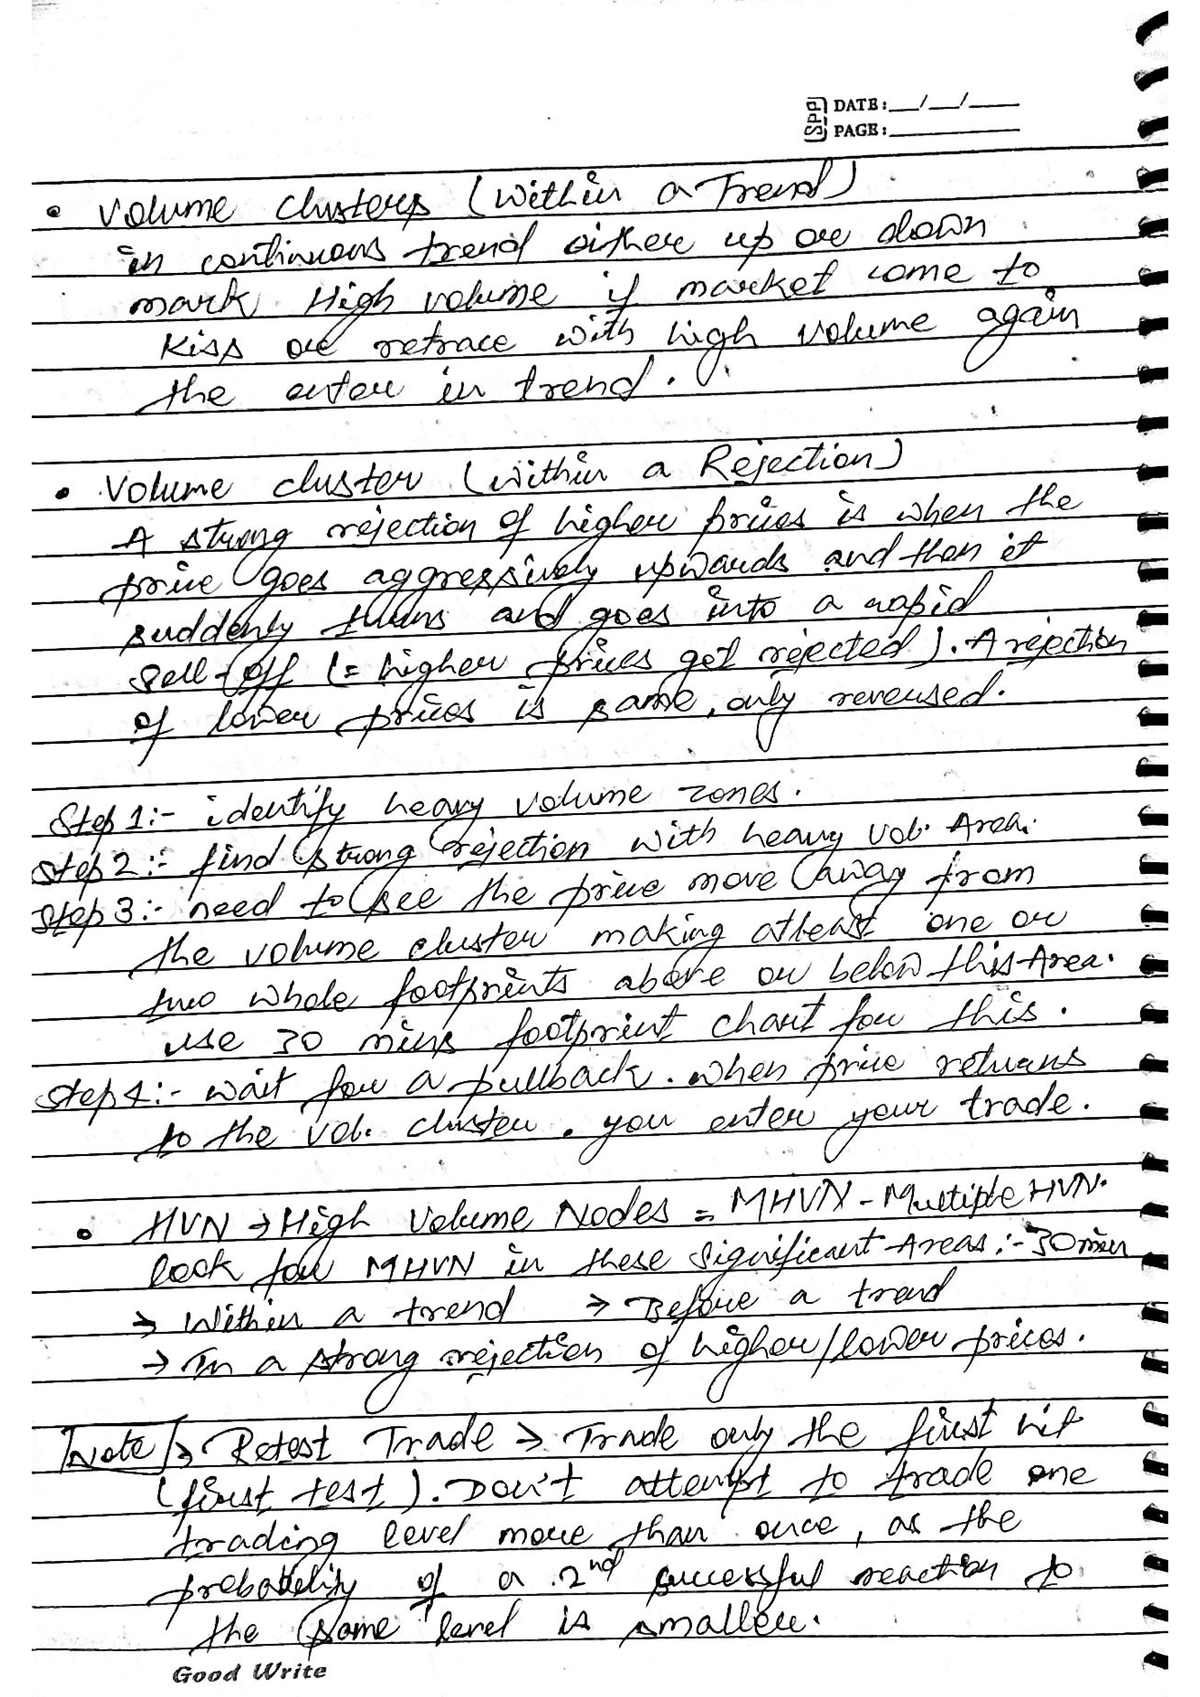 SPP DATE: __/__/____
PAGE: ________
• Volume clusters (Within a Trend)
in continuous trend either up or down
mark High volume if market come to
Kiss or retrace with high volume again
the enter in trend.
• Volume cluster (Within a Rejection)
A strong rejection of higher prices is when the
price goes aggressively upwards and then it
suddenly turns and goes into a rapid
Sell-off (= higher prices get rejected). A rejection
of lower prices is same, only reversed.
Step 1:- identify heavy volume zones.
Step 2:- find strong rejection with heavy vol. Area.
Step 3:- need to see the price move away from
the volume cluster making atleast one or
two whole footprints above or below this Area.
use 30 mins footprint chart for this.
Step 4:- wait for a pullback. when price returns
to the vol. cluster. you enter your trade.
• HVN → High Volume Nodes = MHVN - Multiple HVN.
look for MHVN in these significant Areas:- 30 min
→ Within a trend → Before a trend
→ In a strong rejection of higher/lower prices.
Note → Retest Trade → Trade only the first hit
(first test). Don't attempt to trade one
trading level more than once, as the
probability of a 2nd successful reaction to
the same level is smaller.
Good Write